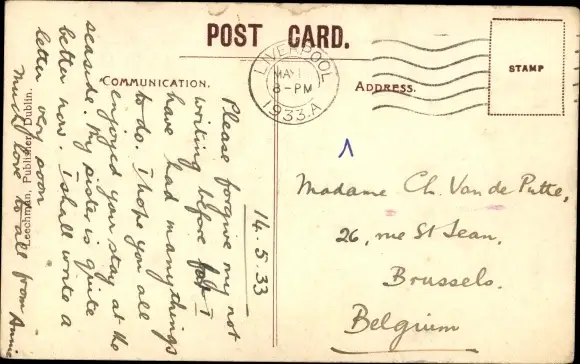 POST CARD.
COMMUNICATION.
ADDRESS.
STAMP
LIVERPOOL
MAY
8-PM
1933.A
14.5.33
Please forgive my not
writing before for I
have had many things
to do. I hope you all
enjoyed your stay at the
seaside. My sister is quite
better now. I shall write a
letter very soon
Much love to all from Annie
Madame Ch. Van de Putte,
26, rue St Jean,
Brussels.
Belgium
Leechman, Publisher, Dublin.